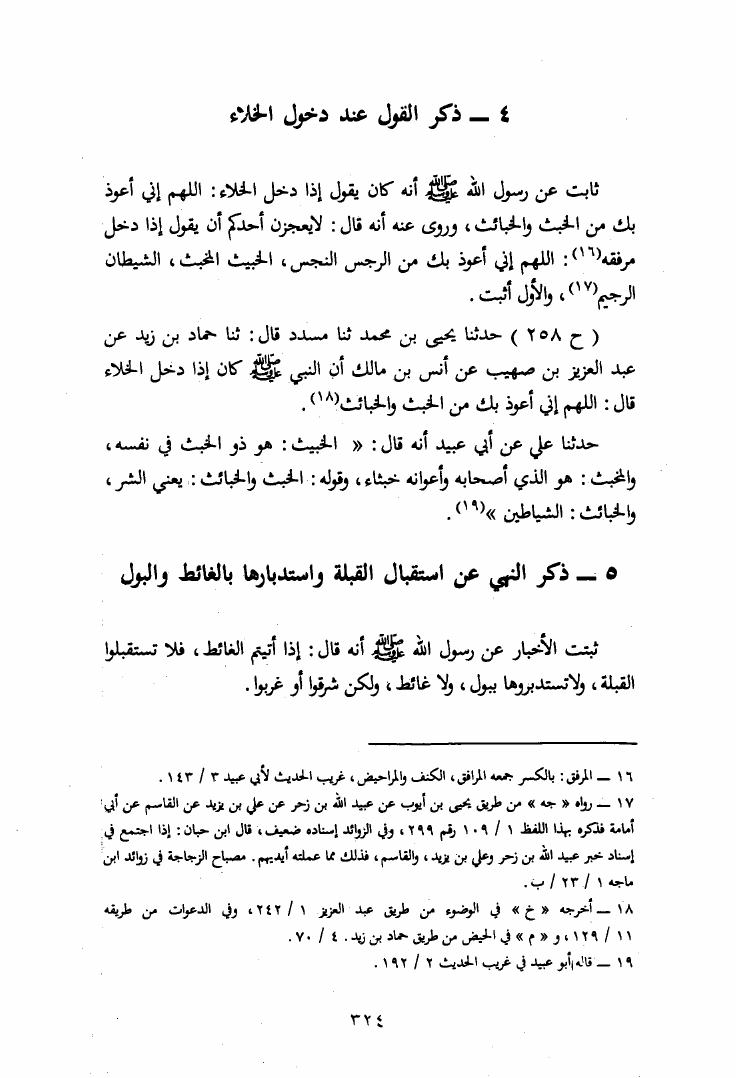 ٤ ـ ذكر القول عند دخول الخلاء
ثابت عن رسول الله ﷺ أنه كان يقول إذا دخل الخلاء : اللهم إني أعوذ
بك من الخبث والخبائث ، وروى عنه أنه قال : لايعجزن أحدكم أن يقول إذا دخل
مرفقه(١٦) : اللهم إني أعوذ بك من الرجس النجس ، الخبيث المخبث ، الشيطان
الرجيم(١٧) ، والأول أثبت .
( ح ٢٥٨ ) حدثنا يحيى بن محمد ثنا مسدد قال : ثنا حماد بن زيد عن
عبد العزيز بن صهيب عن أنس بن مالك أن النبي ﷺ كان إذا دخل الخلاء
قال : اللهم إني أعوذ بك من الخبث والخبائث(١٨) .
حدثنا علي عن أبي عبيد أنه قال : « الخبيث : هو ذو الخبث في نفسه ،
والمخبث : هو الذي أصحابه وأعوانه خبثاء ، وقوله : الخبث والخبائث : يعني الشر ،
والخبائث : الشياطين »(١٩) .
٥ ـ ذكر النهي عن استقبال القبلة واستدبارها بالغائط والبول
ثبتت الأخبار عن رسول الله ﷺ أنه قال : إذا أتيتم الغائط ، فلا تستقبلوا
القبلة ، ولاتستدبروها ببول ، ولا غائط ، ولكن شرقوا أو غربوا .
١٦ ـ المرفق : بالكسر جمعه المرافق ، الكنف والمراحيض ، غريب الحديث لأبي عبيد ٣ / ١٤٣ .
١٧ ـ رواه « جه » من طريق يحيى بن أيوب عن عبيد الله بن زحر عن علي بن يزيد عن القاسم عن أبي
أمامة فذكره بهذا اللفظ ١ / ١٠٩ رقم ٢٩٩ ، وفي الزوائد إسناده ضعيف ، قال ابن حبان : إذا اجتمع في
إسناد خبر عبيد الله بن زحر وعلي بن يزيد ، والقاسم ، فذلك مما عملته أيديهم . مصباح الزجاجة في زوائد ابن
ماجه ١ / ٢٣ / ب .
١٨ ـ أخرجه « خ » في الوضوء من طريق عبد العزيز ١ / ٢٤٢ ، وفي الدعوات من طريقه
١١ / ١٢٩ ، و « م » في الحيض من طريق حماد بن زيد . ٤ / ٧٠ .
١٩ ـ قاله أبو عبيد في غريب الحديث ٢ / ١٩٢ .
٣٢٤